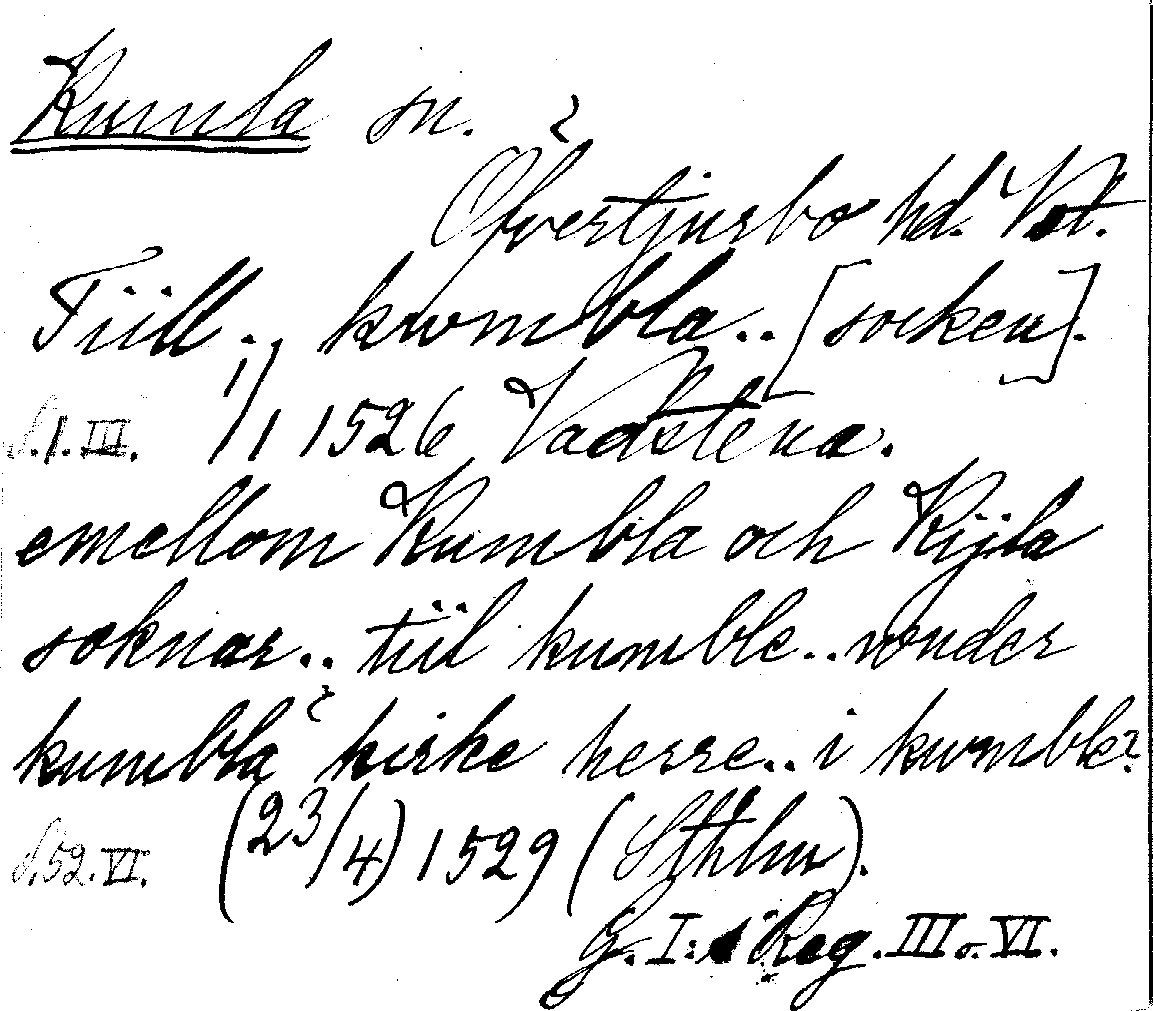 Kumla sn. ?
Öfvertjurbo hd. Vstl.
Tiill.. kwmbla.. [socken].
S.1.III. 1/1 1526 Vadstena.
emellom Kumbla och Kijla
soknar.. tiil kumble.. wnder
kumbla ? kirke herre.. i kwmble?
S.52.VI. (23/4) 1529 (Sthlm).
G. I:s Reg. III o. VI.